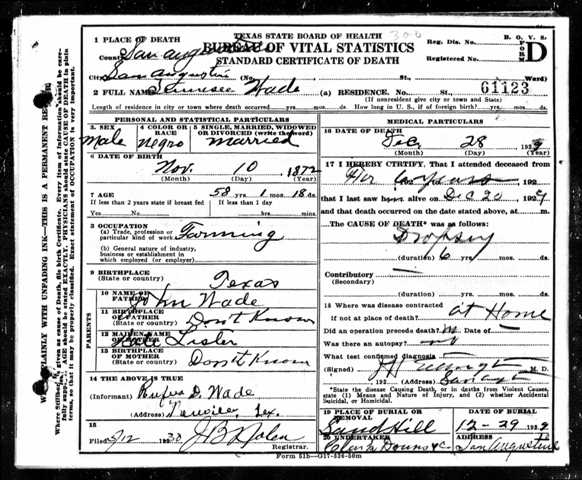 306
TEXAS STATE BOARD OF HEALTH
BUREAU OF VITAL STATISTICS
STANDARD CERTIFICATE OF DEATH
B. O. V. S.
FORM D
Reg. Dis. No.
Registered No.
1 PLACE OF DEATH
County San Augustine
City San Augustine No. St. Ward)
2 FULL NAME Wade (a) RESIDENCE. No. St. 61123
(If nonresident give city or town and State)
Length of residence in city or town where death occurred yrs. mos. ds. How long in U. S., if of foreign birth? yrs. mos. ds.
PERSONAL AND STATISTICAL PARTICULARS
3. SEX Male
4 COLOR OR RACE Negro
5 SINGLE, MARRIED, WIDOWED OR DIVORCED (write the word) married
6 DATE OF BIRTH
Nov. 10 1872
(Month) (Day) (Year)
7 AGE 58 yrs. 1 mos. 18 ds.
If less than 2 years state if breast fed If less than 1 day
Yes No hrs. min.
8 OCCUPATION
(a) Trade, profession or particular kind of work Farming
(b) General nature of industry, business or establishment in which employed (or employer)
9 BIRTHPLACE
(State or country) Texas
PARENTS
10 NAME OF FATHER John Wade
11 BIRTHPLACE OF FATHER
(State or country) Don't Know
12 MAIDEN NAME OF MOTHER Lister
13 BIRTHPLACE OF MOTHER
(State or country) Don't Know
14 THE ABOVE IS TRUE
(Informant) Rufus D. Wade
(Address) Tex.
15
Filed 1930 J B Nolan
Registrar.
MEDICAL PARTICULARS
16 DATE OF DEATH
Dec 28 1929
(Month) (Day) (Year)
17 I HEREBY CERTIFY, That I attended deceased
years 192
that I last saw alive on Dec 20, 1929
and that death occurred on the date stated above, at m.
The CAUSE OF DEATH* was as follows:
Dropsy
(duration) 6 yrs. mos. ds.
Contributory
(Secondary)
(duration) yrs. mos. ds.
18 Where was disease contracted
if not at place of death? at Home
Did an operation precede death? Date of
Was there an autopsy?
What test confirmed diagnosis
(Signed) M. D.
192 (Address)
*State the disease Causing Death, or in deaths from Violent Causes, state (1) Means and Nature of Injury, and (2) whether Accidental, Suicidal, or Homicidal.
19 PLACE OF BURIAL OR REMOVAL Sand Hill
DATE OF BURIAL 12-29 1929
20 UNDERTAKER Clark Downs & Co San Augustine
Form 51b—G17-526-50m